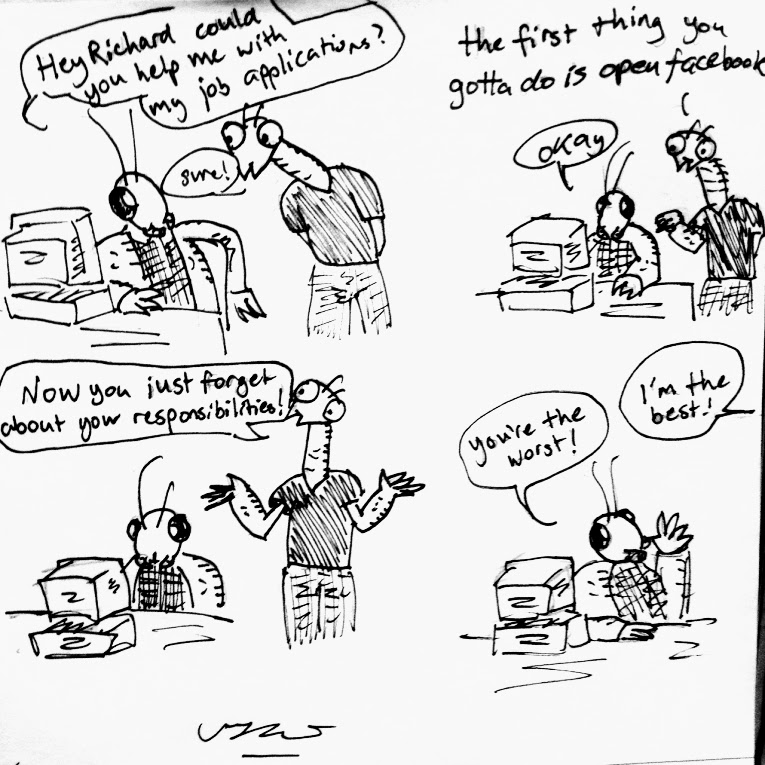 Hey Richard could
you help me with
my job applications?
sure!
the first thing you
gotta do is open facebook
okay
Now you just forget
about your responsibilities!
you're the
worst!
I'm the
best!